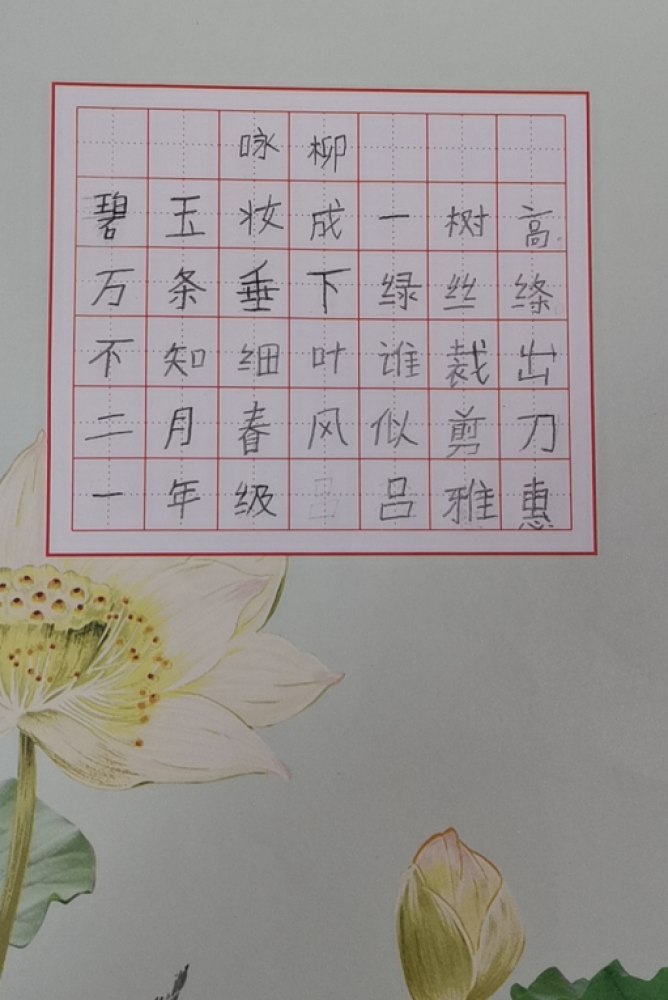 咏柳
碧玉妆成一树高
万条垂下绿丝绦
不知细叶谁裁出
二月春风似剪刀
一年级 吕雅惠